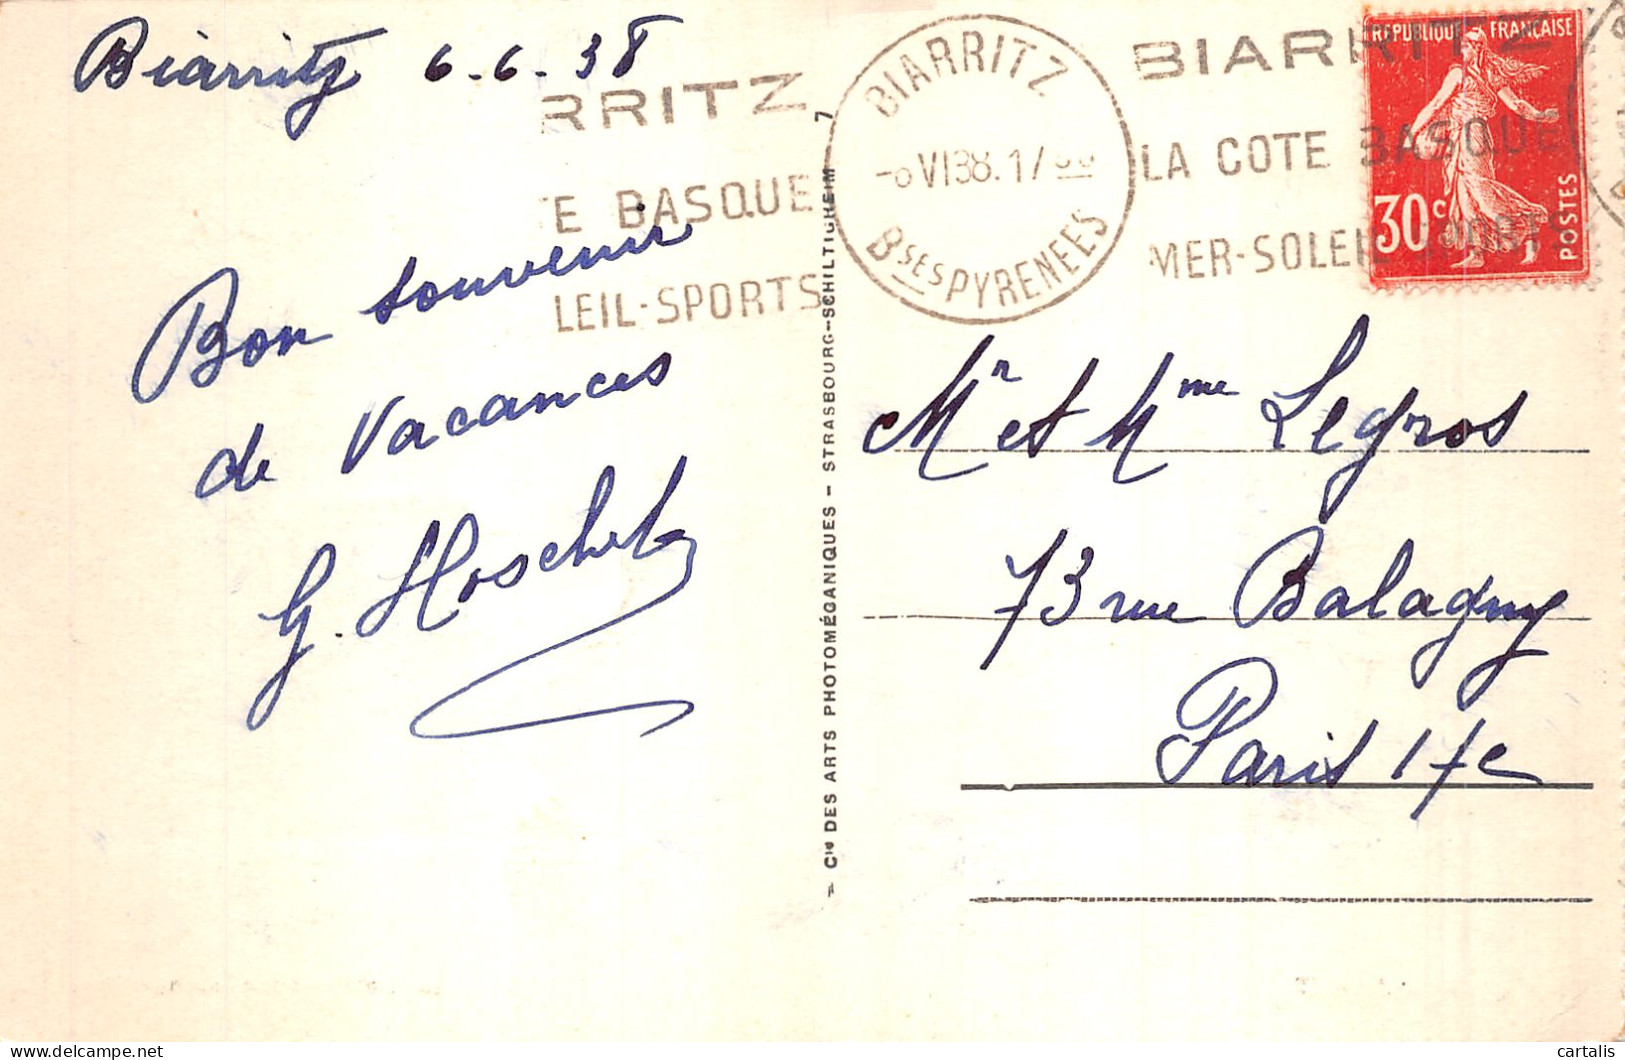 Biarritz 6.6.38
RRITZ
E BASQUE
LEIL-SPORTS
BIARRITZ
-6 VI 38.17
Bses PYRENEES
BIARRITZ
LA COTE BASQUE
MER-SOLEIL-SPORTS
REPUBLIQUE FRANÇAISE
30c
POSTES
Bon souvenir
de Vacances
G.
Cie DES ARTS PHOTOMÉGANIQUES - STRASBOURG-SCHILTIGHEIM 7
Mr et Mme Legros
73 rue Balagny
Paris 17e
cartalis